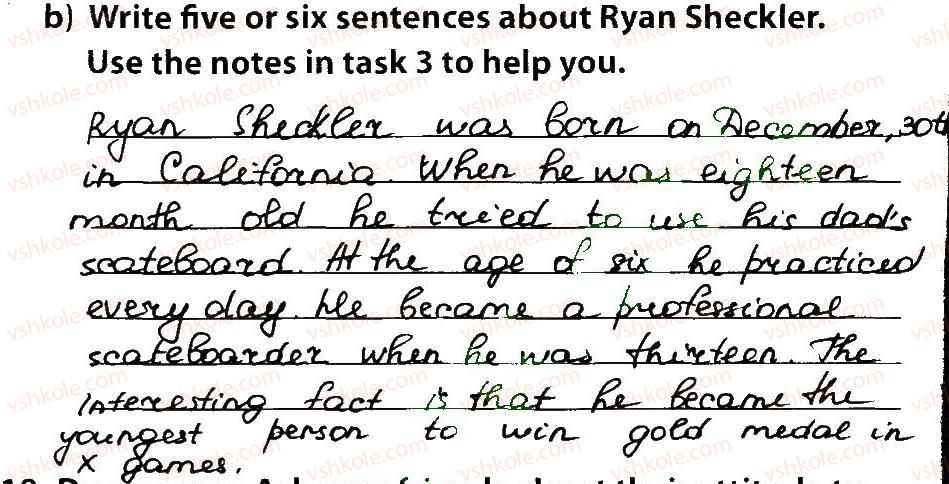 b) Write five or six sentences about Ryan Sheckler.
Use the notes in task 3 to help you.
Ryan Sheckler was born on December, 30th
in California. When he was eighteen
month old he tried to use his dad's
scateboard. At the age of six he practiced
every day. He became a professional
scateboarder when he was thirteen. The
interesting fact is that he became the
youngest person to win gold medal in
X games.